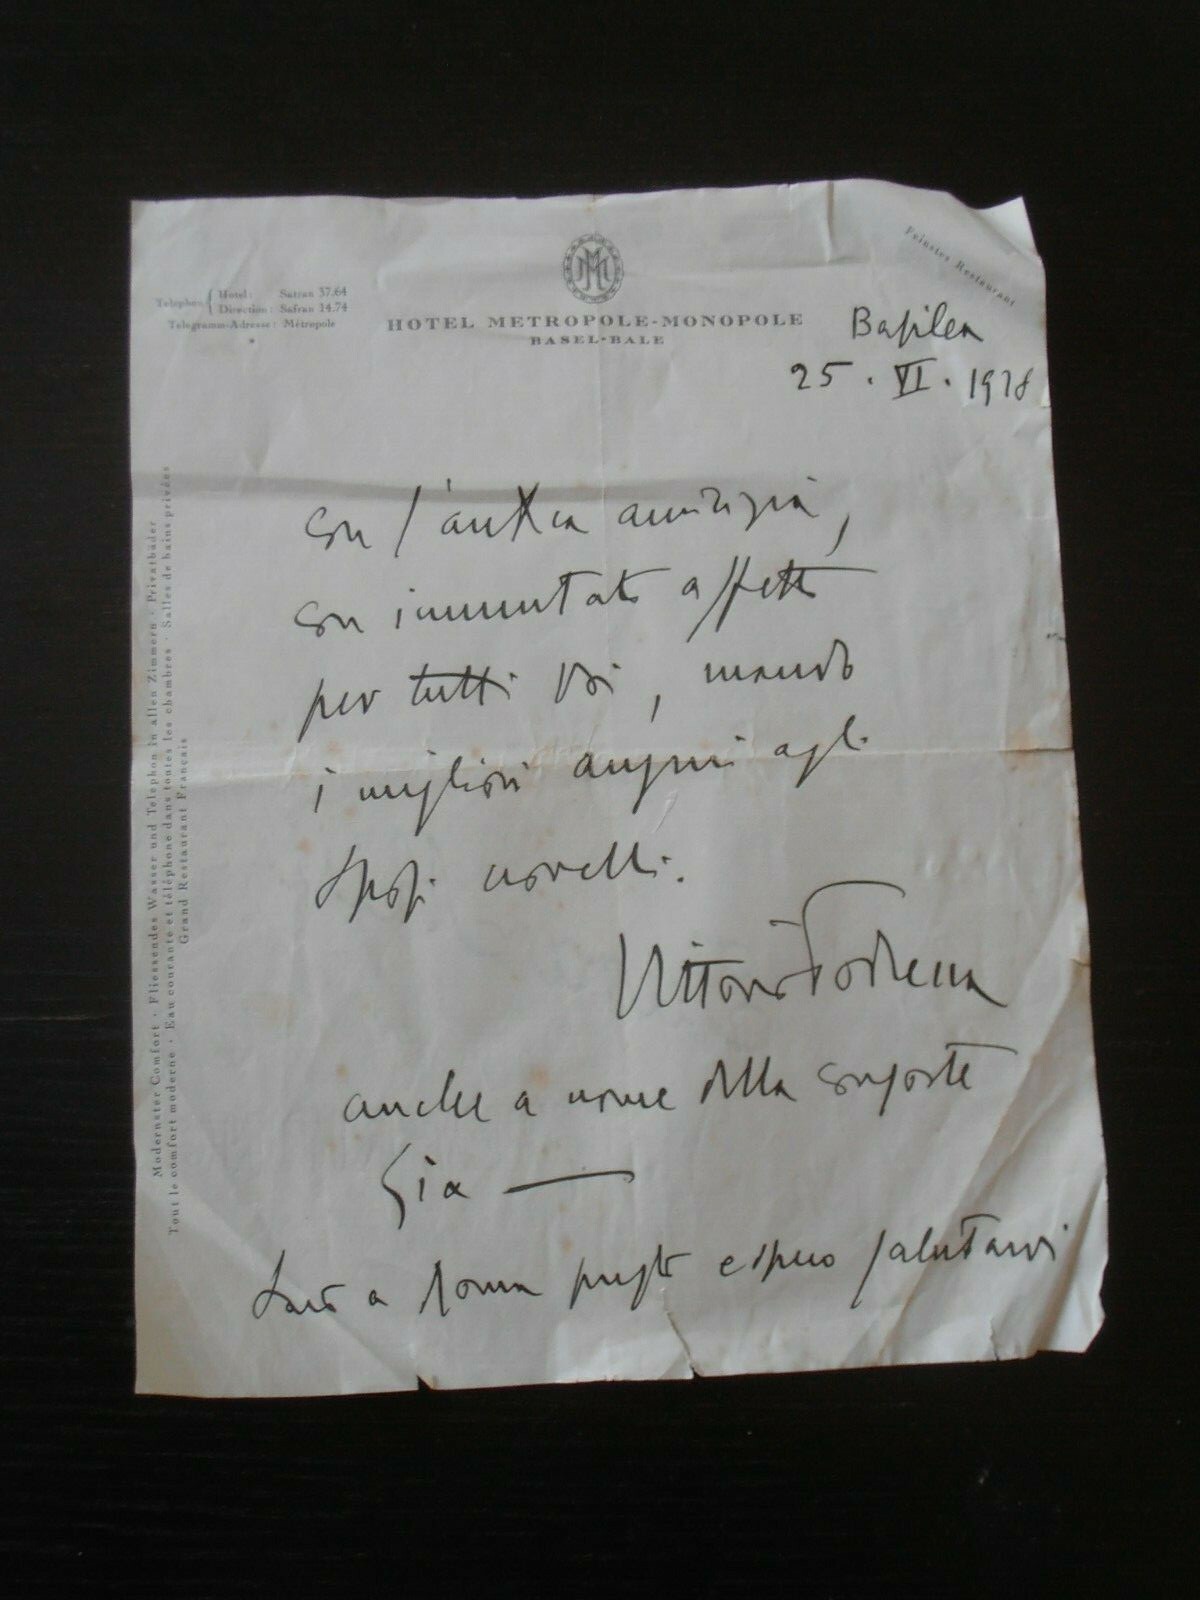 Telephon { Hotel: Safran 37.64
Direction: Safran 14.74
Telegramm-Adresse: Métropole
HOTEL METROPOLE-MONOPOLE
BASEL-BALE
Feinstes Restaurant
Basilea
25. VI. 1928
con l'antica amicizia,
con immutato affetto
per tutti Voi, mando
i migliori auguri agli
Sposi novelli.
Vittorio Podrecca
anche a nome della consorte
Lia —
Sarò a Roma presto e spero salutarvi
Modernster Comfort · Fliessendes Wasser und Telephon in allen Zimmern · Privatbäder
Tout le comfort moderne · Eau courante et téléphone dans toutes les chambres · Salles de bains privées
Grand Restaurant Français